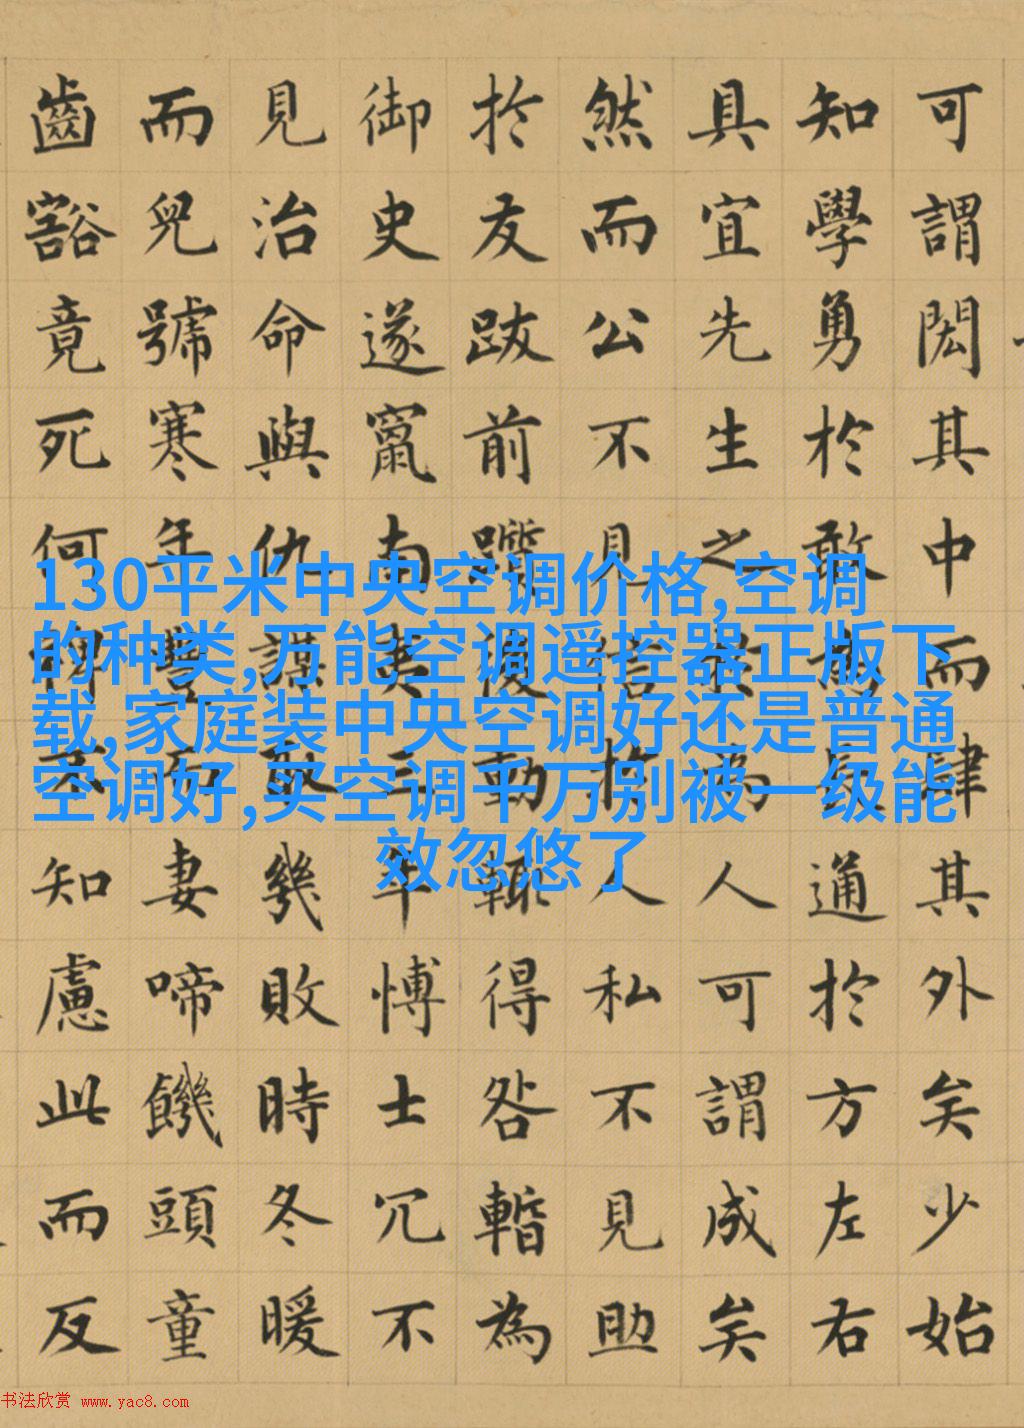 可謂閎其中而肆其外矣少始
知學勇於敢為長通於方左右
具宜先生之於為人可謂成矣
然而公不見信於人私不見助
於友跋前躓後動輒得咎暫為
御史遂竄南夷三年愽士冗不
見治命與仇謀取幾敗時冬暖
而兒號寒年豐而妻啼饑頭童
齒豁竟死何裨不知慮此而反
130平米中央空调价格,空调
的种类,万能空调遥控器正版下
载,家庭装中央空调好还是普通
空调好,买空调千万别被一级能
效忽悠了
书法欣赏 www.yac8.com